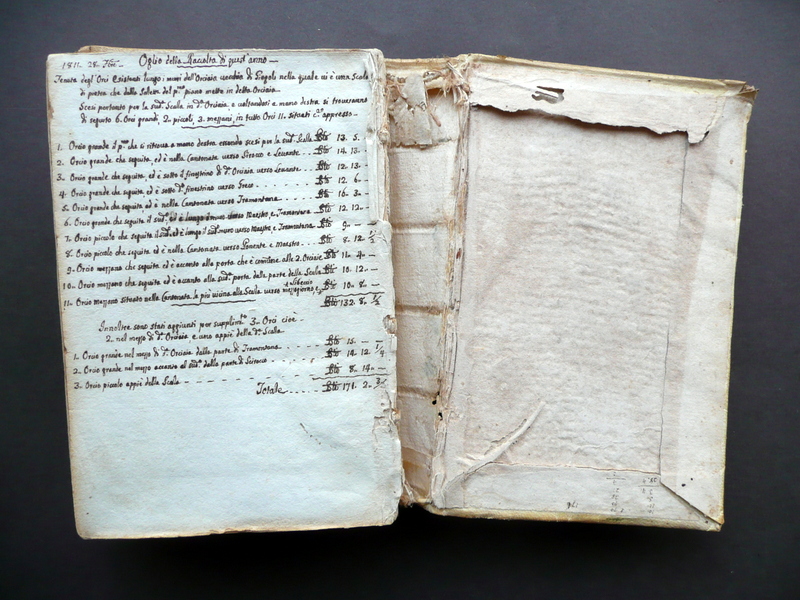 1811. 28. 7bre. Oglio della Raccolta di quest'anno
Tenuta degl'Orci Esistenti lungo i muri dell'Orciaia nella quale vi è una Scala
di pietra che dalla del pmo piano mette in detta Orciaia.
Scesi pertanto per la sudda Scala in da Orciaia, e voltandosi a mano destra si troveranno
di seguito 6. Orci grandi, 2. piccoli, 3. mezzani, in tutto Orci 11. situati appresso.
1. Orcio grande il pmo che si ritrova a mano destra essendo scesi per la sudda Scalla 13. 5.
2. Orcio grande che seguita, ed è nella Cantonata verso Sirocco e Levante 14. 13.
3. Orcio grande che seguita, ed è sotto il finestrino di da Orciaia verso Levante 12. 13.
4. Orcio grande che seguita, ed è sotto do finestrino verso Greco 12. 6.
5. Orcio grande che seguita ed è nella Cantonata verso Tramontana 16. 3.
6. Orcio grande che seguita il sudo verso Maestro e Tramontana 12. 12.
7. Orcio piccolo che seguita il sudo ed è lungo il sudo muro verso Maestro e Tramontana 9.
8. Orcio piccolo che seguita, ed è nella Cantonata verso Ponente e Maestro 8. 12. 1/2
9. Orcio mezzano che seguita ed è accanto alla porta che è comune alle 2. Orciaie 11. 4.
10. Orcio mezzano che seguita ed è accanto alla sudda porta dalla parte della Scala 10. 12.
11. Orcio mezzano situato nella Cantonata la più vicina alla Scala verso Libeccio e mezzogiorno 10. 8.
132. 8. 1/2
Innoltre sono stati aggiunti per supplimto 3. Orci cioè
2. nel mezzo di da Orciaia e uno appiè della da Scalla
1. Orcio grande nel mezzo di da Orciaia dalla parte di Tramontana 15.
2. Orcio grande nel mezzo accanto al sudo dalla parte di Scirocco 14. 12. 1/4
3. Orcio piccolo appiè della Scala 8. 14.
Totale 171. 2. 3/4